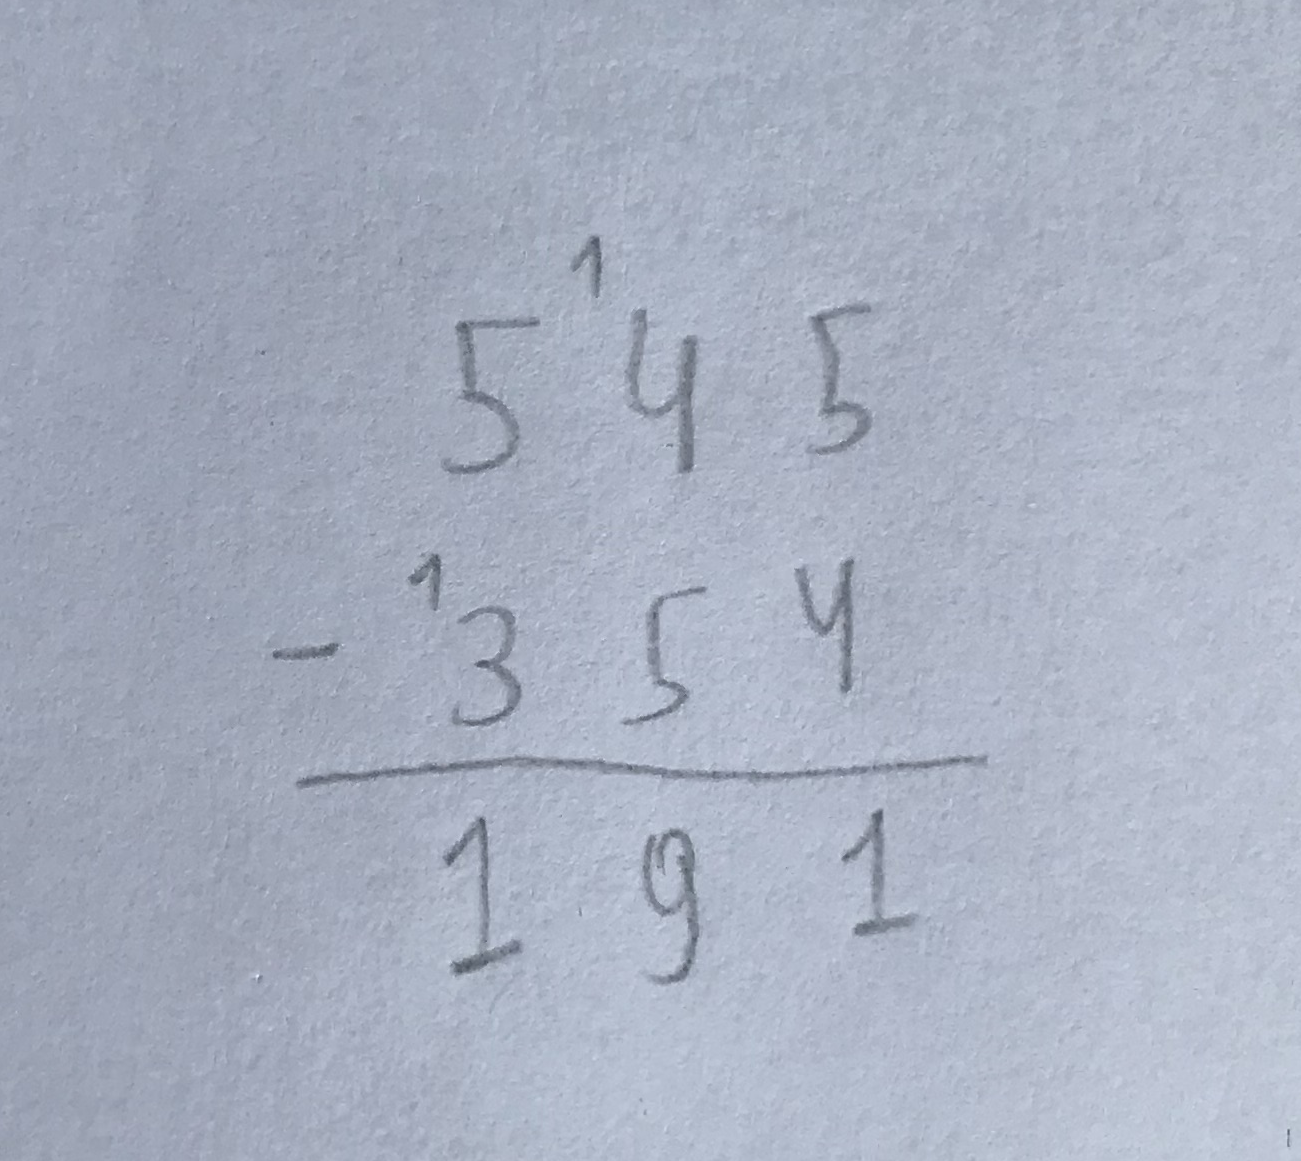 1
5 4 5
1
- 3 5 4
1 9 1